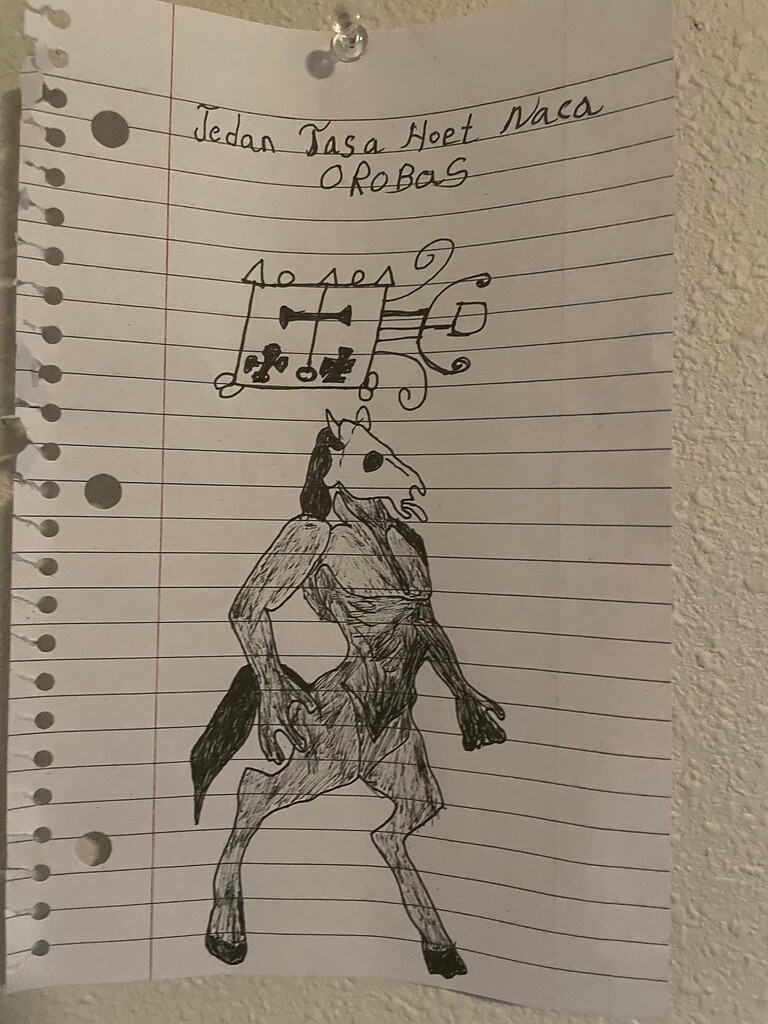 Jedan Tasa Hoet Naca
OROBAS